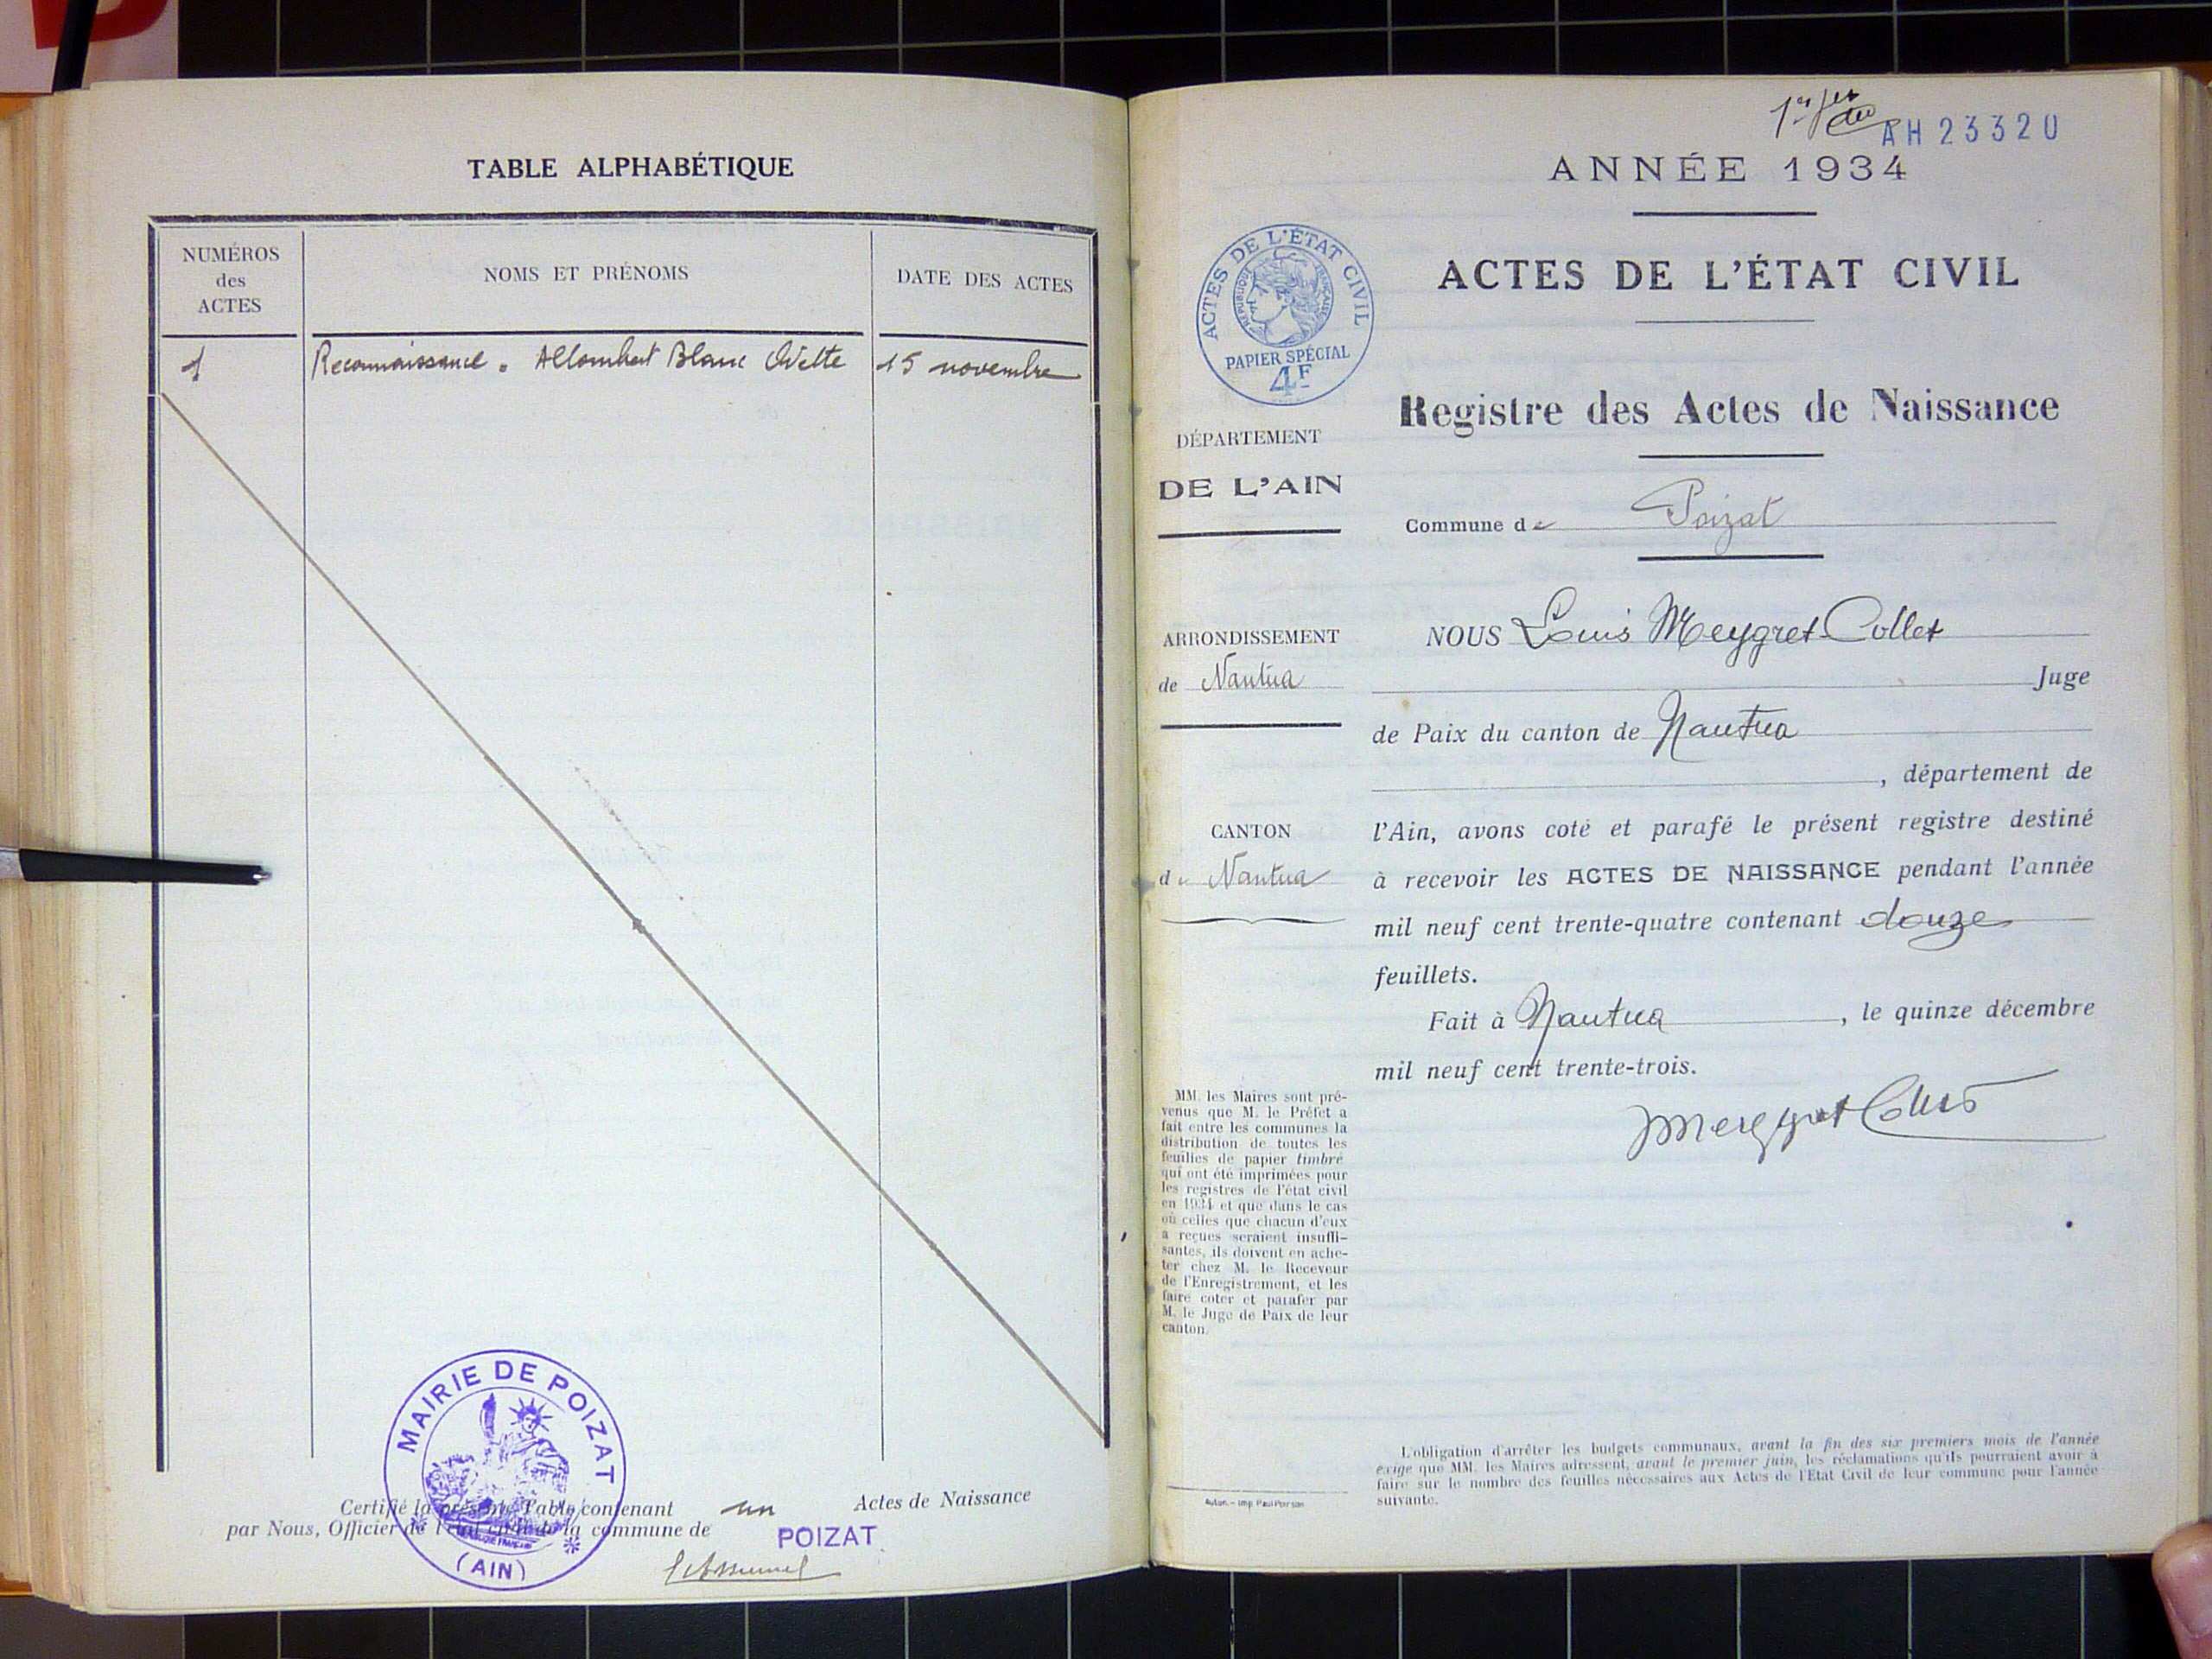 TABLE ALPHABÉTIQUE
NUMÉROS
des
ACTES
NOMS ET PRÉNOMS
DATE DES ACTES
1
Reconnaissance. Allombert Blanc
15 novembre
MAIRIE DE POIZAT
(AIN)
Certifié la présente Table contenant un Actes de Naissance
par Nous, Officier de l'état civil de la commune de POIZAT
AH 23320
ANNÉE 1934
ACTES DE L'ÉTAT CIVIL
RÉPUBLIQUE FRANÇAISE
PAPIER SPÉCIAL
4F
ACTES DE L'ÉTAT CIVIL
Registre des Actes de Naissance
DÉPARTEMENT
DE L'AIN
Commune de Poizat
ARRONDISSEMENT
de Nantua
CANTON
de Nantua
NOUS Louis Meygret-Collet
Juge
de Paix du canton de Nantua
, département de
l'Ain, avons coté et parafé le présent registre destiné
à recevoir les ACTES DE NAISSANCE pendant l'année
mil neuf cent trente-quatre contenant douze
feuillets.
Fait à Nantua, le quinze décembre
mil neuf cent trente-trois.
Meygret Collet
MM. les Maires sont pré-
venus que M. le Préfet a
fait entre les communes la
distribution de toutes les
feuilles de papier timbré
qui ont été imprimées pour
les registres de l'état civil
en 1934 et que dans le cas
où celles que chacun d'eux
a reçues seraient insuffi-
santes, ils doivent en ache-
ter chez M. le Receveur
de l'Enregistrement, et les
faire coter et parafer par
M. le Juge de Paix de leur
canton.
L'obligation d'arrêter les budgets communaux, avant la fin des six premiers mois de l'année
exige que MM. les Maires adressent, avant le premier juin, les réclamations qu'ils pourraient avoir à
faire sur le nombre des feuilles nécessaires aux Actes de l'Etat Civil de leur commune pour l'année
suivante.